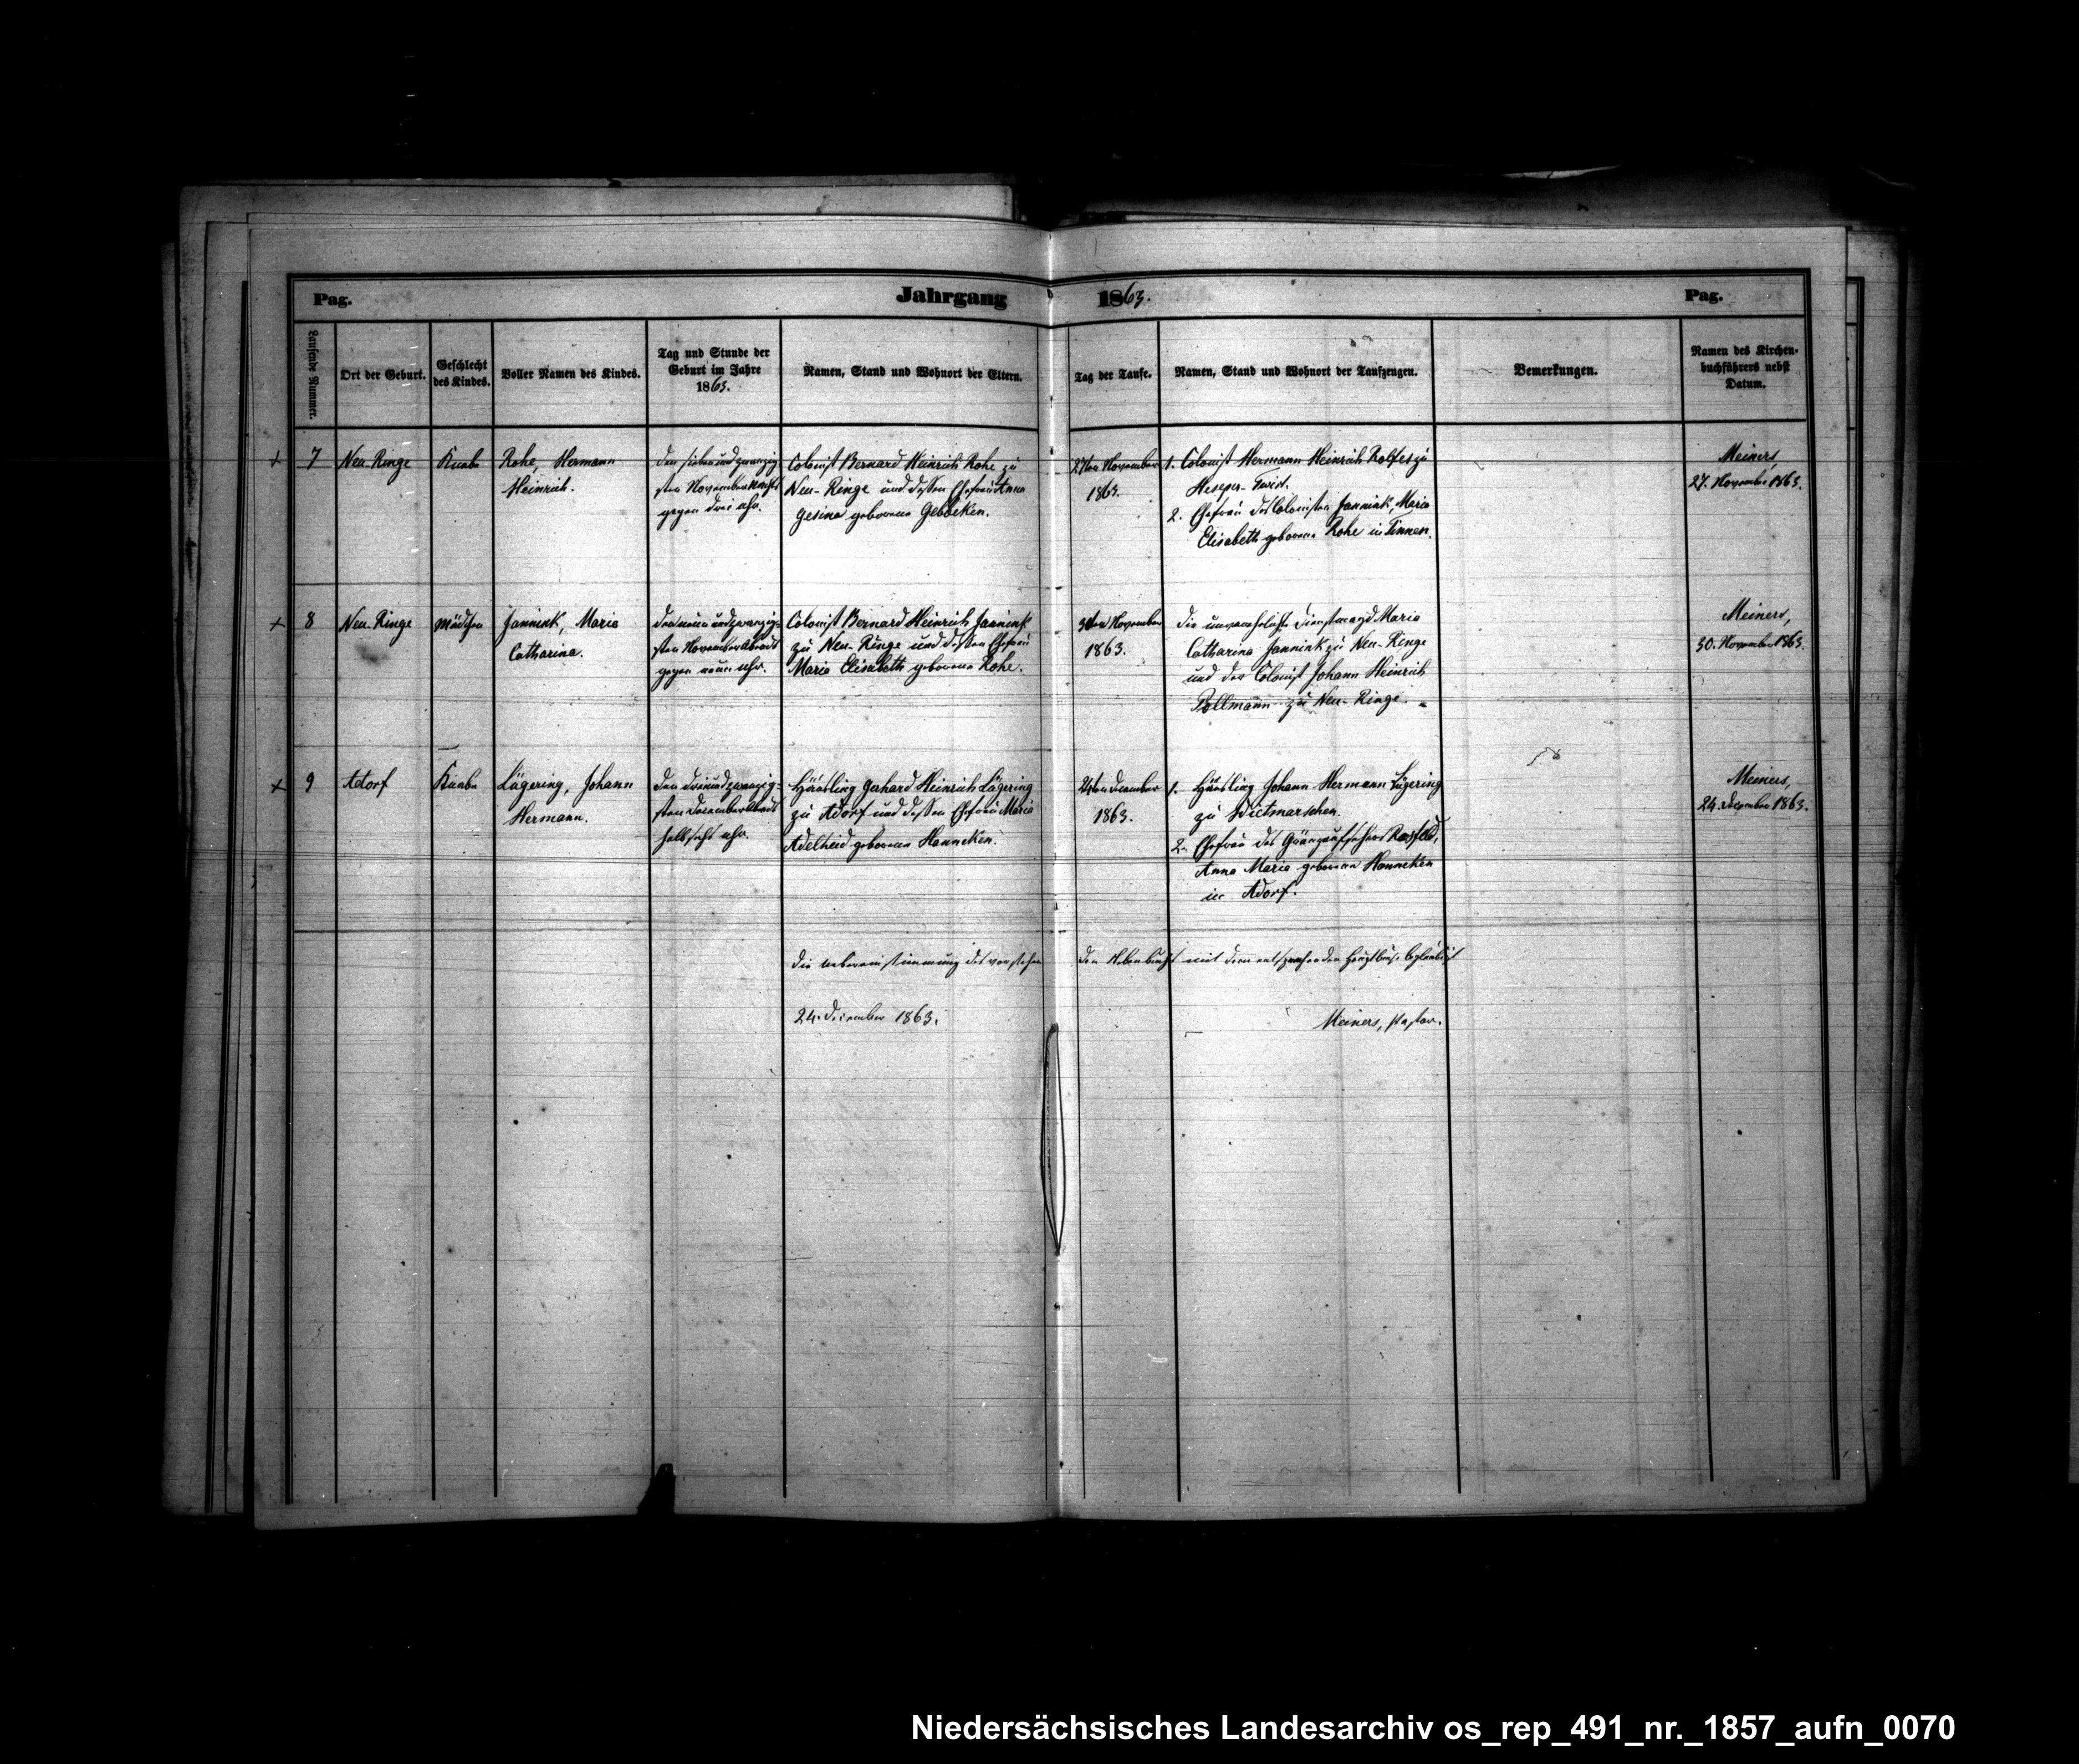 Pag.
Jahrgang
1863.
Pag.
Laufende Nummer.
Ort der Geburt.
Geschlecht
des Kindes.
Voller Namen des Kindes.
Tag und Stunde der
Geburt im Jahre
1863.
Namen, Stand und Wohnort der Eltern.
Tag der Taufe.
Namen, Stand und Wohnort der Taufzeugen.
Bemerkungen.
Namen des Kirchen-
buchführers nebst
Datum.
7
Neu-Ringe
Knabe
Rohe, Hermann
Heinrich.
den siebenundzwanzig
sten November Nachts
gegen drei Uhr.
Colonist Bernard Heinrich Rohe zu
Neu-Ringe und dessen Ehefrau Anna
Gesina geborene Gebbeken.
27ten November
1863.
1. Colonist Hermann Heinrich Rolfes zu
Heseper-Twist.
2. Ehefrau des Colonisten Jannink, Maria
Elisabeth geborene Rohe in Tinnen.
Meiners,
27. November 1863.
8
Neu-Ringe
Mädchen
Jannink, Maria
Catharina.
den neunundzwanzig-
sten November Abends
gegen neun Uhr.
Colonist Bernard Heinrich Jannink
zu Neu-Ringe und dessen Ehefrau
Maria Elisabeth geborene Rohe.
30ten November
1863.
die unverehelichte Dienstmagd Maria
Catharina Jannink zu Neu-Ringe
und der Colonist Johann Heinrich
Pollmann zu Neu-Ringe.
Meiners,
30. November 1863.
9
Adorf
Knabe
Lügering, Johann
Hermann.
den dreiundzwanzig-
sten December Abends
halb acht Uhr.
Häusling Gerhard Heinrich Lügering
zu Adorf und dessen Ehefrau Maria
Adelheid geborene Hanneken.
24ten December
1863.
1. Häusling Johann Hermann Lügering
zu Dietmarschen.
2. Ehefrau des Gränzaufsehers
Anna Maria geborene Hanneken
in Adorf.
Meiners,
24. December 1863.
Die Uebereinstimmung des vorstehen
den Nebenbuchs mit dem entsprechenden Hauptbuche beglaubigt
24. December 1863.
Meiners, Pastor.
Niedersächsisches Landesarchiv os_rep_491_nr._1857_aufn_0070